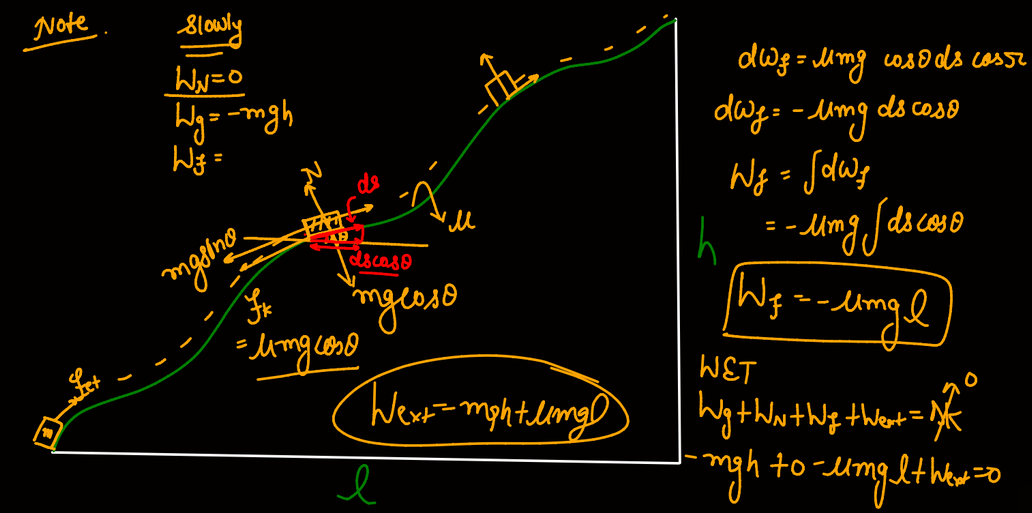 Note.
Slowly
W_N = 0
W_g = -mgh
W_f =
N
ds
θ
μ
mgsinθ
dscosθ
mgcosθ
f_k
= μmgcosθ
f_ext
m
W_ext = mgh + μmgl
l
h
dw_f = μmg cosθ ds cosπ
dw_f = -μmg ds cosθ
W_f = ∫dw_f
= -μmg ∫ds cosθ
W_f = -μmg l
WET
W_g + W_N + W_f + W_ext = ΔK 0
-mgh + 0 - μmg l + W_ext = 0